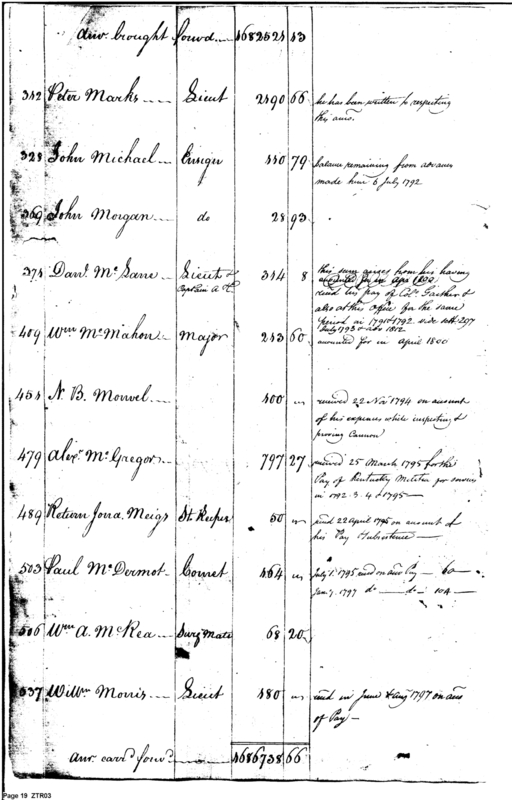 amt. brought forwd. 4682521 43
342 Peter Marks Lieut 2490 66 he has been written to respecting
this amt.
328 John Michael Ensign 440 79 balance remaining from advances
made him 6 July 1792
369 John Morgan do 28 93
374 Danl. Mc Lane Lieut & 314 8 this sum arises from his having
Captain
recd his pay of Col. Gaither &
also at this office for the same
period in 1791 & 1792
409 Wm Mc Mahon Major 243 60
accounted for in April 1800
454 N. B. 400 received 22 Nov 1794 on account
of his expenses while inspecting &
proving Cannon
479 Alexr. Mc Gregor 797 27 received 25 March 1795 for the
Pay of Kentucky Militia for services
in 1792. 3. 4 & 1795
489 Return Jona. Meigs St. Keeper 50 recd 22 April 1795 on account of
his Pay & Subsistence
503 Paul Mc Dermot Cornet 464 July 1. 1795 recd on acct Pay 60
Jany. 1797 do do 404
506 Wm A. Mc Rea Surgs Mate 68 20
537 Willm Morris Lieut 480 recd in June & Augt 1797 on acct
of Pay
amt. carrd. forwd. 4686738 66
Page 19 ZTR03